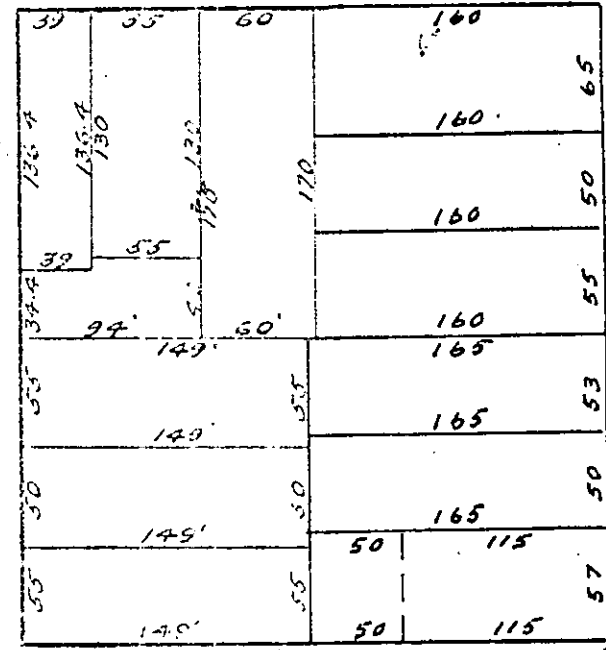 39 55 60 160
136.4 136.4 130 130 170 170 65
160
50
160
39 55
34.4 55
94' 60' 160
149' 165
55 55 53
149' 165
50 50 50
149' 165
50 115
55 55 57
149' 50 115